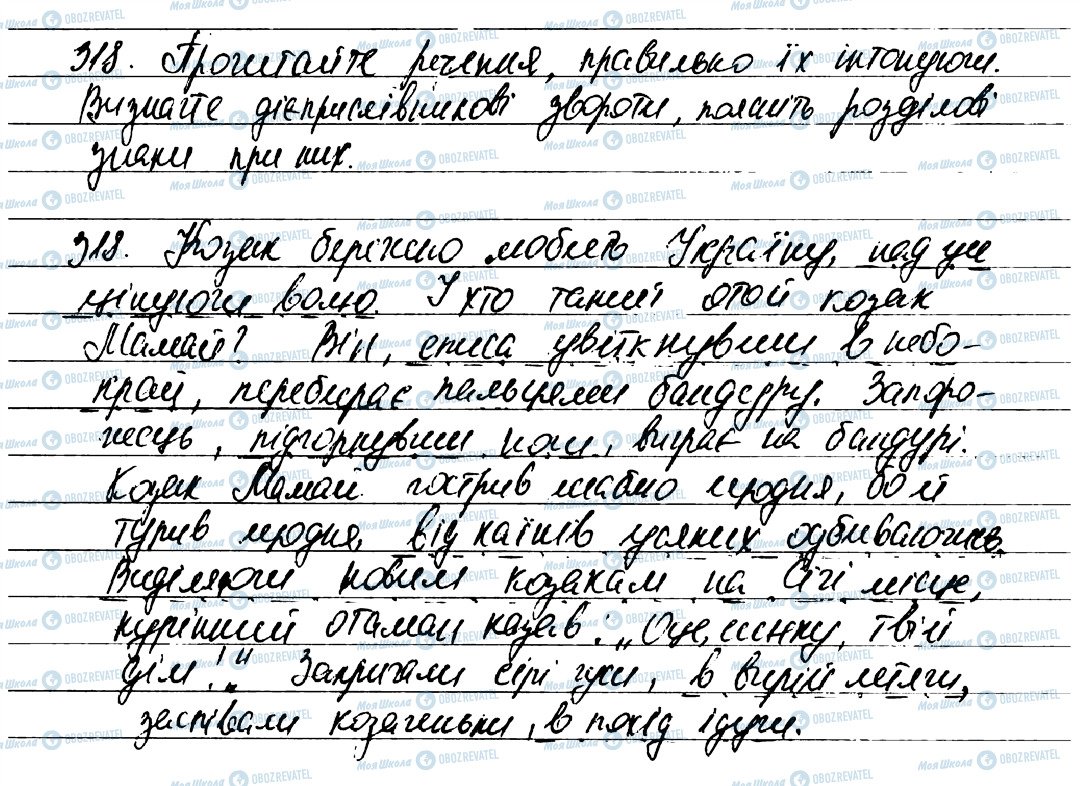 318. Прочитайте речення, правильно їх інтонуючи.
Визначте дієприслівникові звороти, поясніть розділові
знаки при них.
318. Козак бережно любить Україну, над усе
цінуючи волю. У хто такий отой козак
Мамай? Він, списа увіткнувши в небо-
край, перебирає пальцями бандуру. Запоро-
жець, підгорнувши ноги, виграє на бандурі.
Козак Мамай гострив шаблю щодня, бо й
турив щодня, від наїхів усяких одбиваючись.
Виділяючи новим козакам на Січі місце,
курінний отаман казав: „Оце, синку, твій
дім!" Закричали сірі гуси, в вирій летячи,
заспівали козаченьки, в похід ідучи.